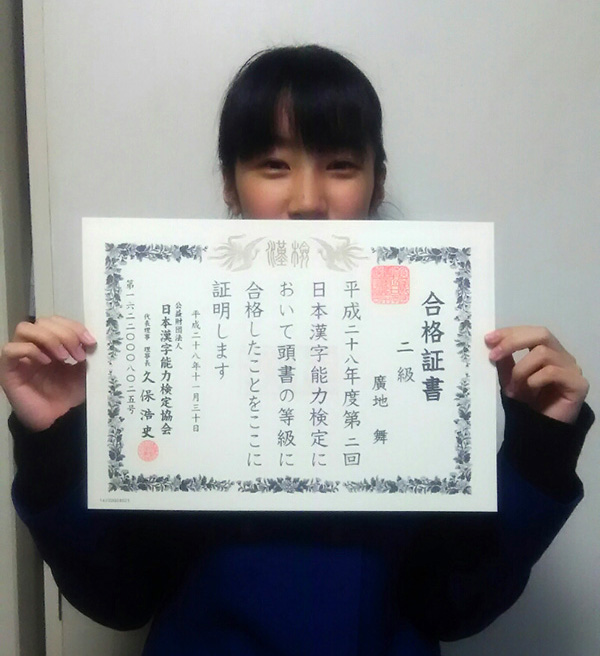 漢検
合格証書
二級
廣地 舞
平成二十八年度第二回
日本漢字能力検定に
おいて頭書の等級に
合格したことをここに
証明します
平成二十八年十一月三十日
公益財団法人
日本漢字能力検定協会
代表理事 理事長 久保浩史
第一六二二〇〇〇八〇二五号